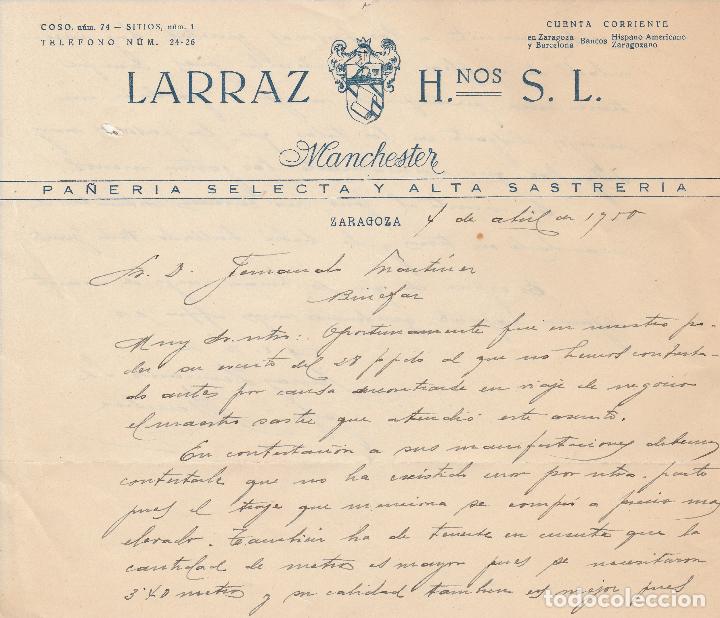 COSO, núm. 74 – SITIOS, núm. 1
TELEFONO NÚM. 24-26
CUENTA CORRIENTE
en Zaragoza y Barcelona Bancos Hispano Americano Zaragozano
LARRAZ H.NOS S. L.
Manchester
PAÑERIA SELECTA Y ALTA SASTRERIA
ZARAGOZA 4 de abril de 1950
Sr. D. Fernando Martínez
Binefar
Muy Sr. ntro: Oportunamente fué en nuestro po-
der su escrito del 28 ppdo al que no hemos contesta-
do antes por causa encontrarse en viaje de negocios
el maestro sastre que atendió este asunto.
En contestación a sus manifestaciones debemos
contestarle que no ha existido error por ntra. parte
pues el traje que menciona se compró a precio mas
elevado. Tambien ha de tenerse en cuenta que la
cantidad de metros es mayor pues se necesitaron
3'40 metros y su calidad tambien es mejor pues
todocoleccion.net